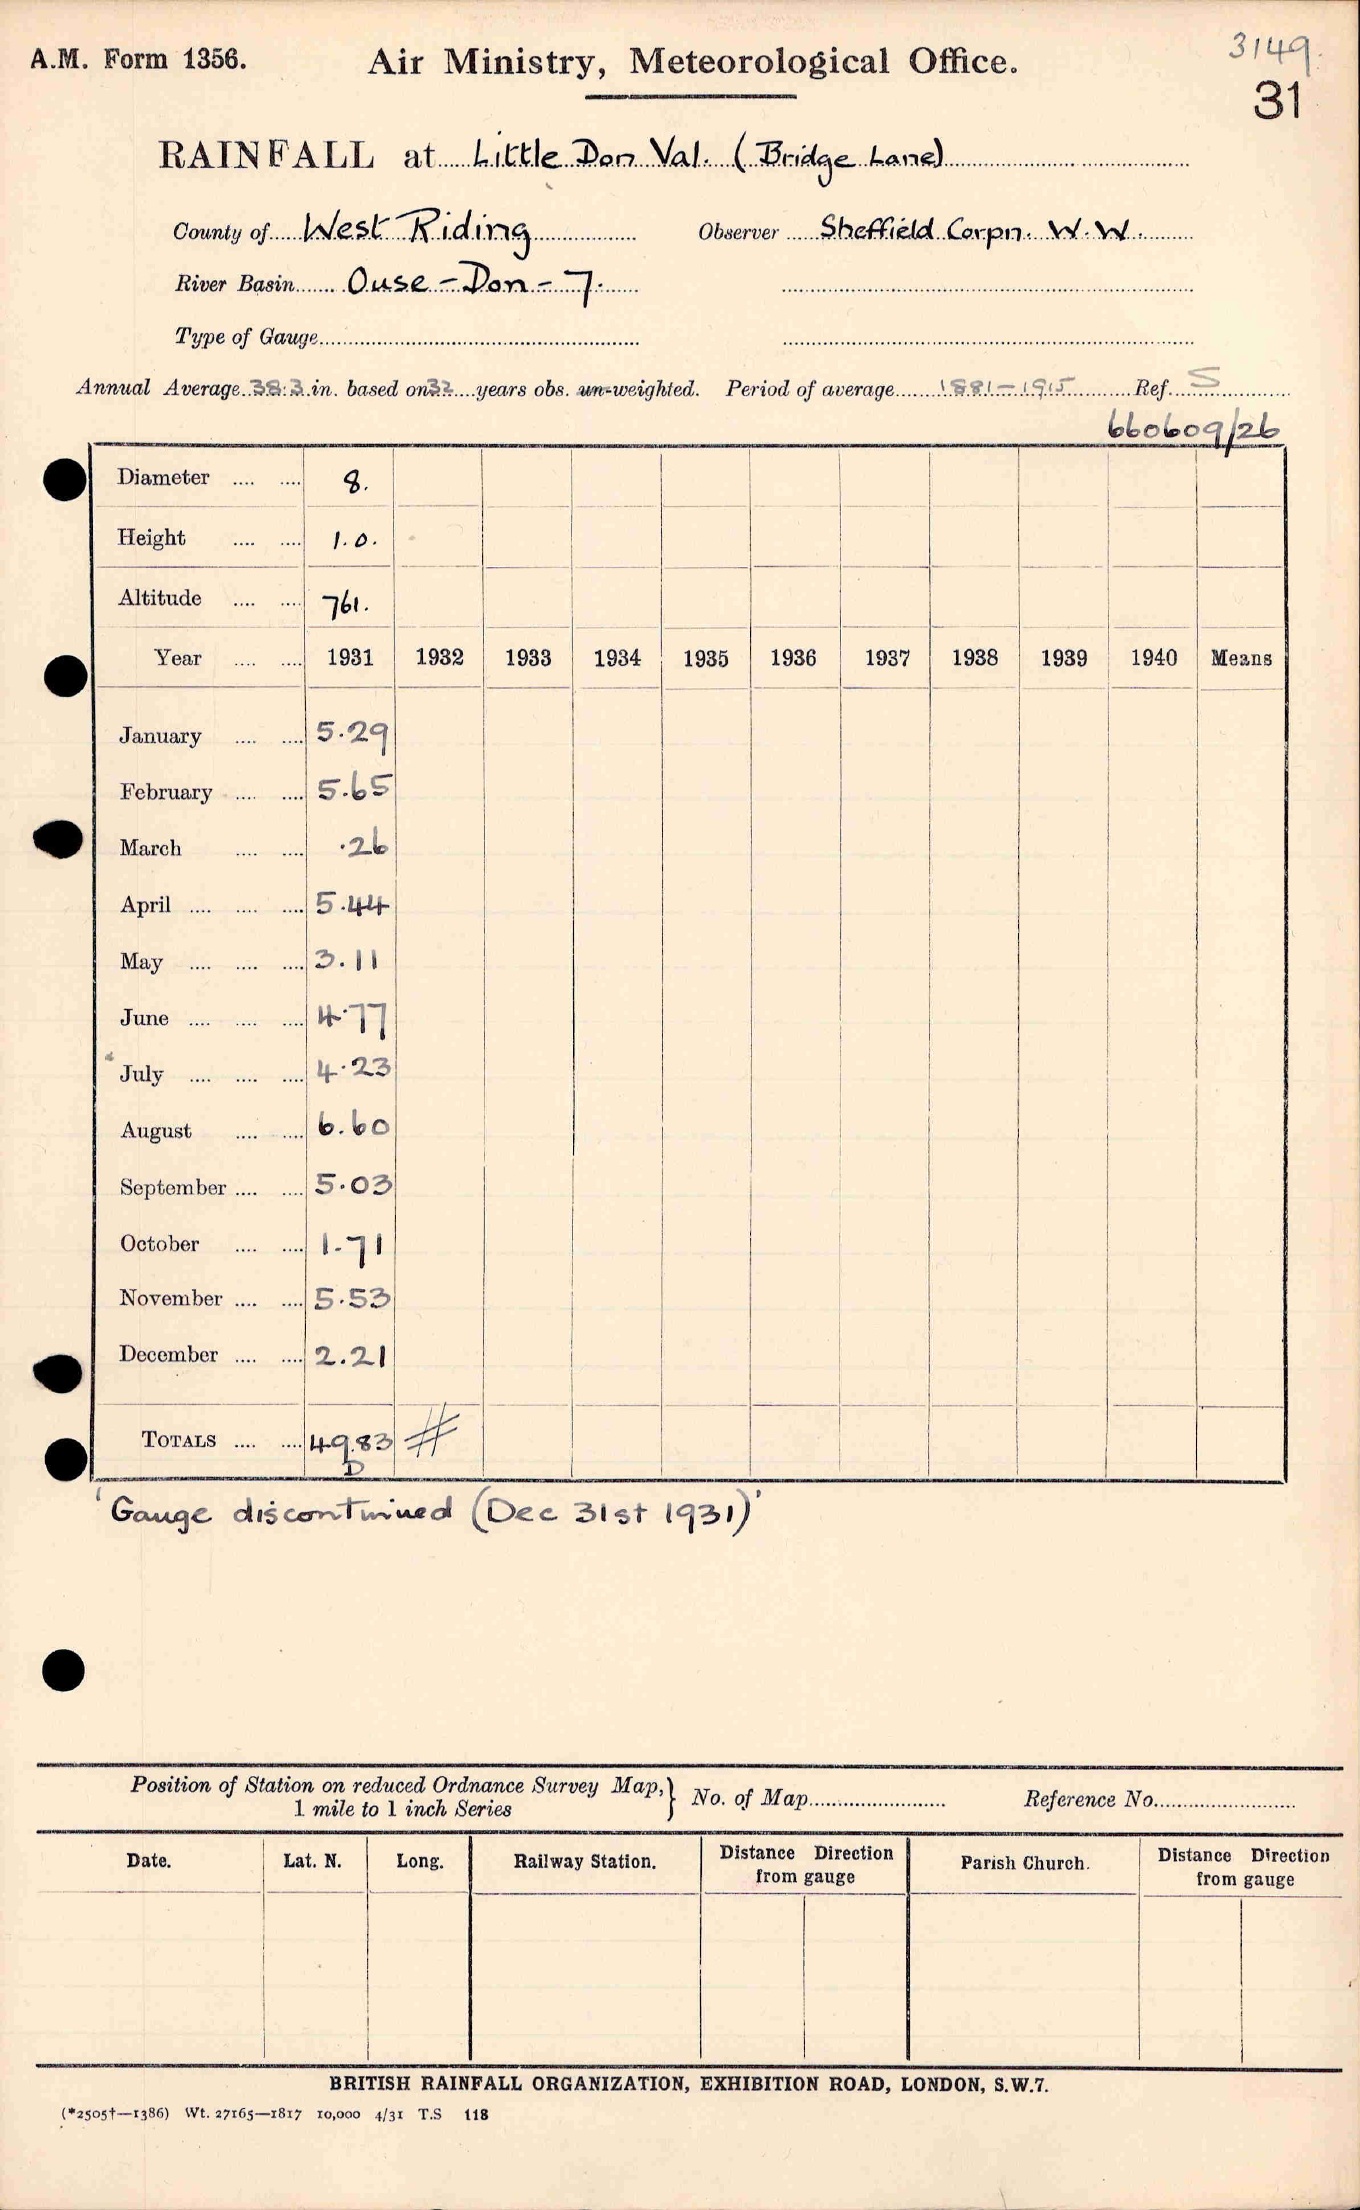 A.M. Form 1356.
Air Ministry, Meteorological Office.
3149.
31
RAINFALL at Little Don Val. (Bridge Lane)
County of West Riding Observer Sheffield Corpn. W.W.
River Basin Ouse-Don-7.
Type of Gauge
Annual Average 38.3 in. based on 32 years obs. un-weighted. Period of average 1881-1915 Ref. S
660609/26
Diameter .... .... 8.
Height .... .... 1.0.
Altitude .... .... 761.
Year .... .... 1931 1932 1933 1934 1935 1936 1937 1938 1939 1940 Means
January .... .... 5.29
February .... .... 5.65
March .... .... .26
April .... .... .... 5.44
May .... .... .... 3.11
June .... .... .... 4.77
July .... .... .... 4.23
August .... .... 6.60
September .... .... 5.03
October .... .... 1.71
November .... .... 5.53
December .... .... 2.21
TOTALS .... .... 49.83 #
D
'Gauge discontinued (Dec 31st 1931)'
Position of Station on reduced Ordnance Survey Map,} No. of Map Reference No.
1 mile to 1 inch Series
Date. Lat. N. Long. Railway Station. Distance Direction from gauge Parish Church. Distance Direction from gauge
BRITISH RAINFALL ORGANIZATION, EXHIBITION ROAD, LONDON, S.W.7.
(*2505†—1386) Wt. 27165—1817 10,000 4/31 T.S 118